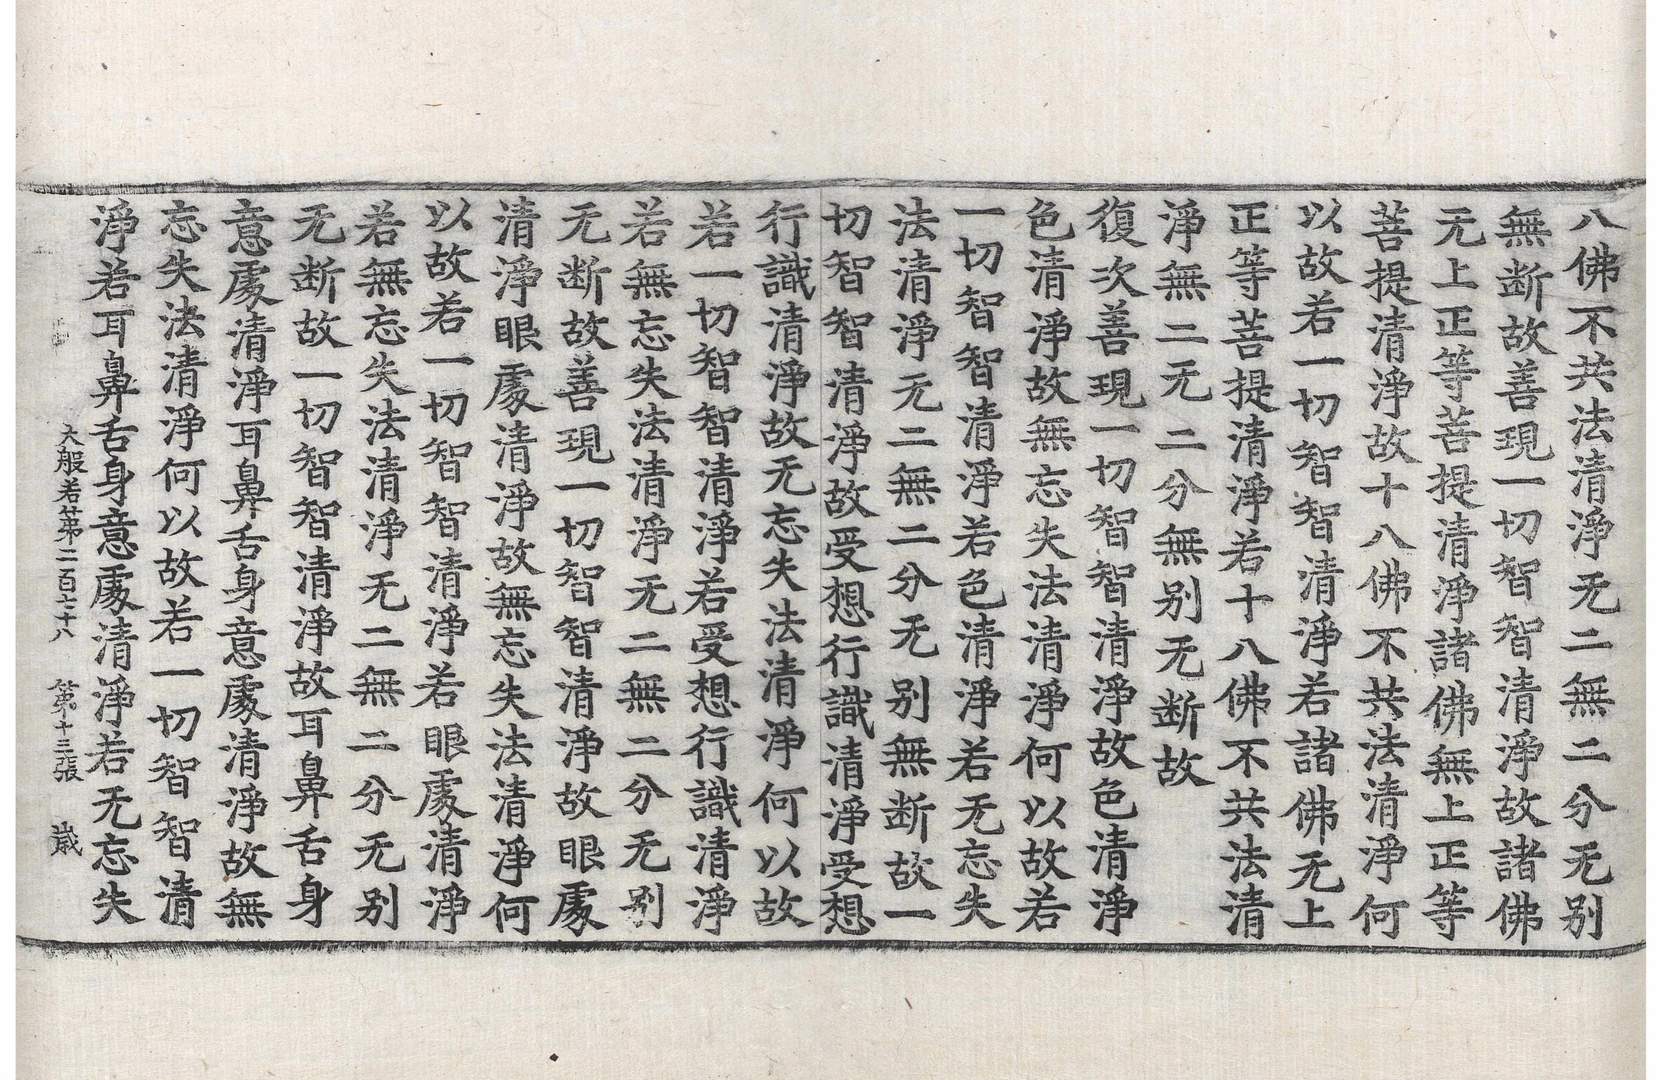 八佛不共法清淨无二無二分无别
無断故善現一切智智清淨故諸佛
无上正等菩提清淨諸佛無上正等
菩提清淨故十八佛不共法清淨何
以故若一切智智清淨若諸佛无上
正等菩提清淨若十八佛不共法清
淨無二无二分無别无断故
復次善現一切智智清淨故色清淨
色清淨故無忘失法清淨何以故若
一切智智清淨若色清淨若无忘失
法清淨无二無二分无别無断故一
切智智清淨故受想行識清淨受想
行識清淨故无忘失法清淨何以故
若一切智智清淨若受想行識清淨
若無忘失法清淨无二無二分无别
无断故善現一切智智清淨故眼處
清淨眼處清淨故無忘失法清淨何
以故若一切智智清淨若眼處清淨
若無忘失法清淨无二無二分无别
无断故一切智智清淨故耳鼻舌身
意處清淨耳鼻舌身意處清淨故無
忘失法清淨何以故若一切智智清
淨若耳鼻舌身意處清淨若无忘失
大般若第二百七十八 第十三張 嵗